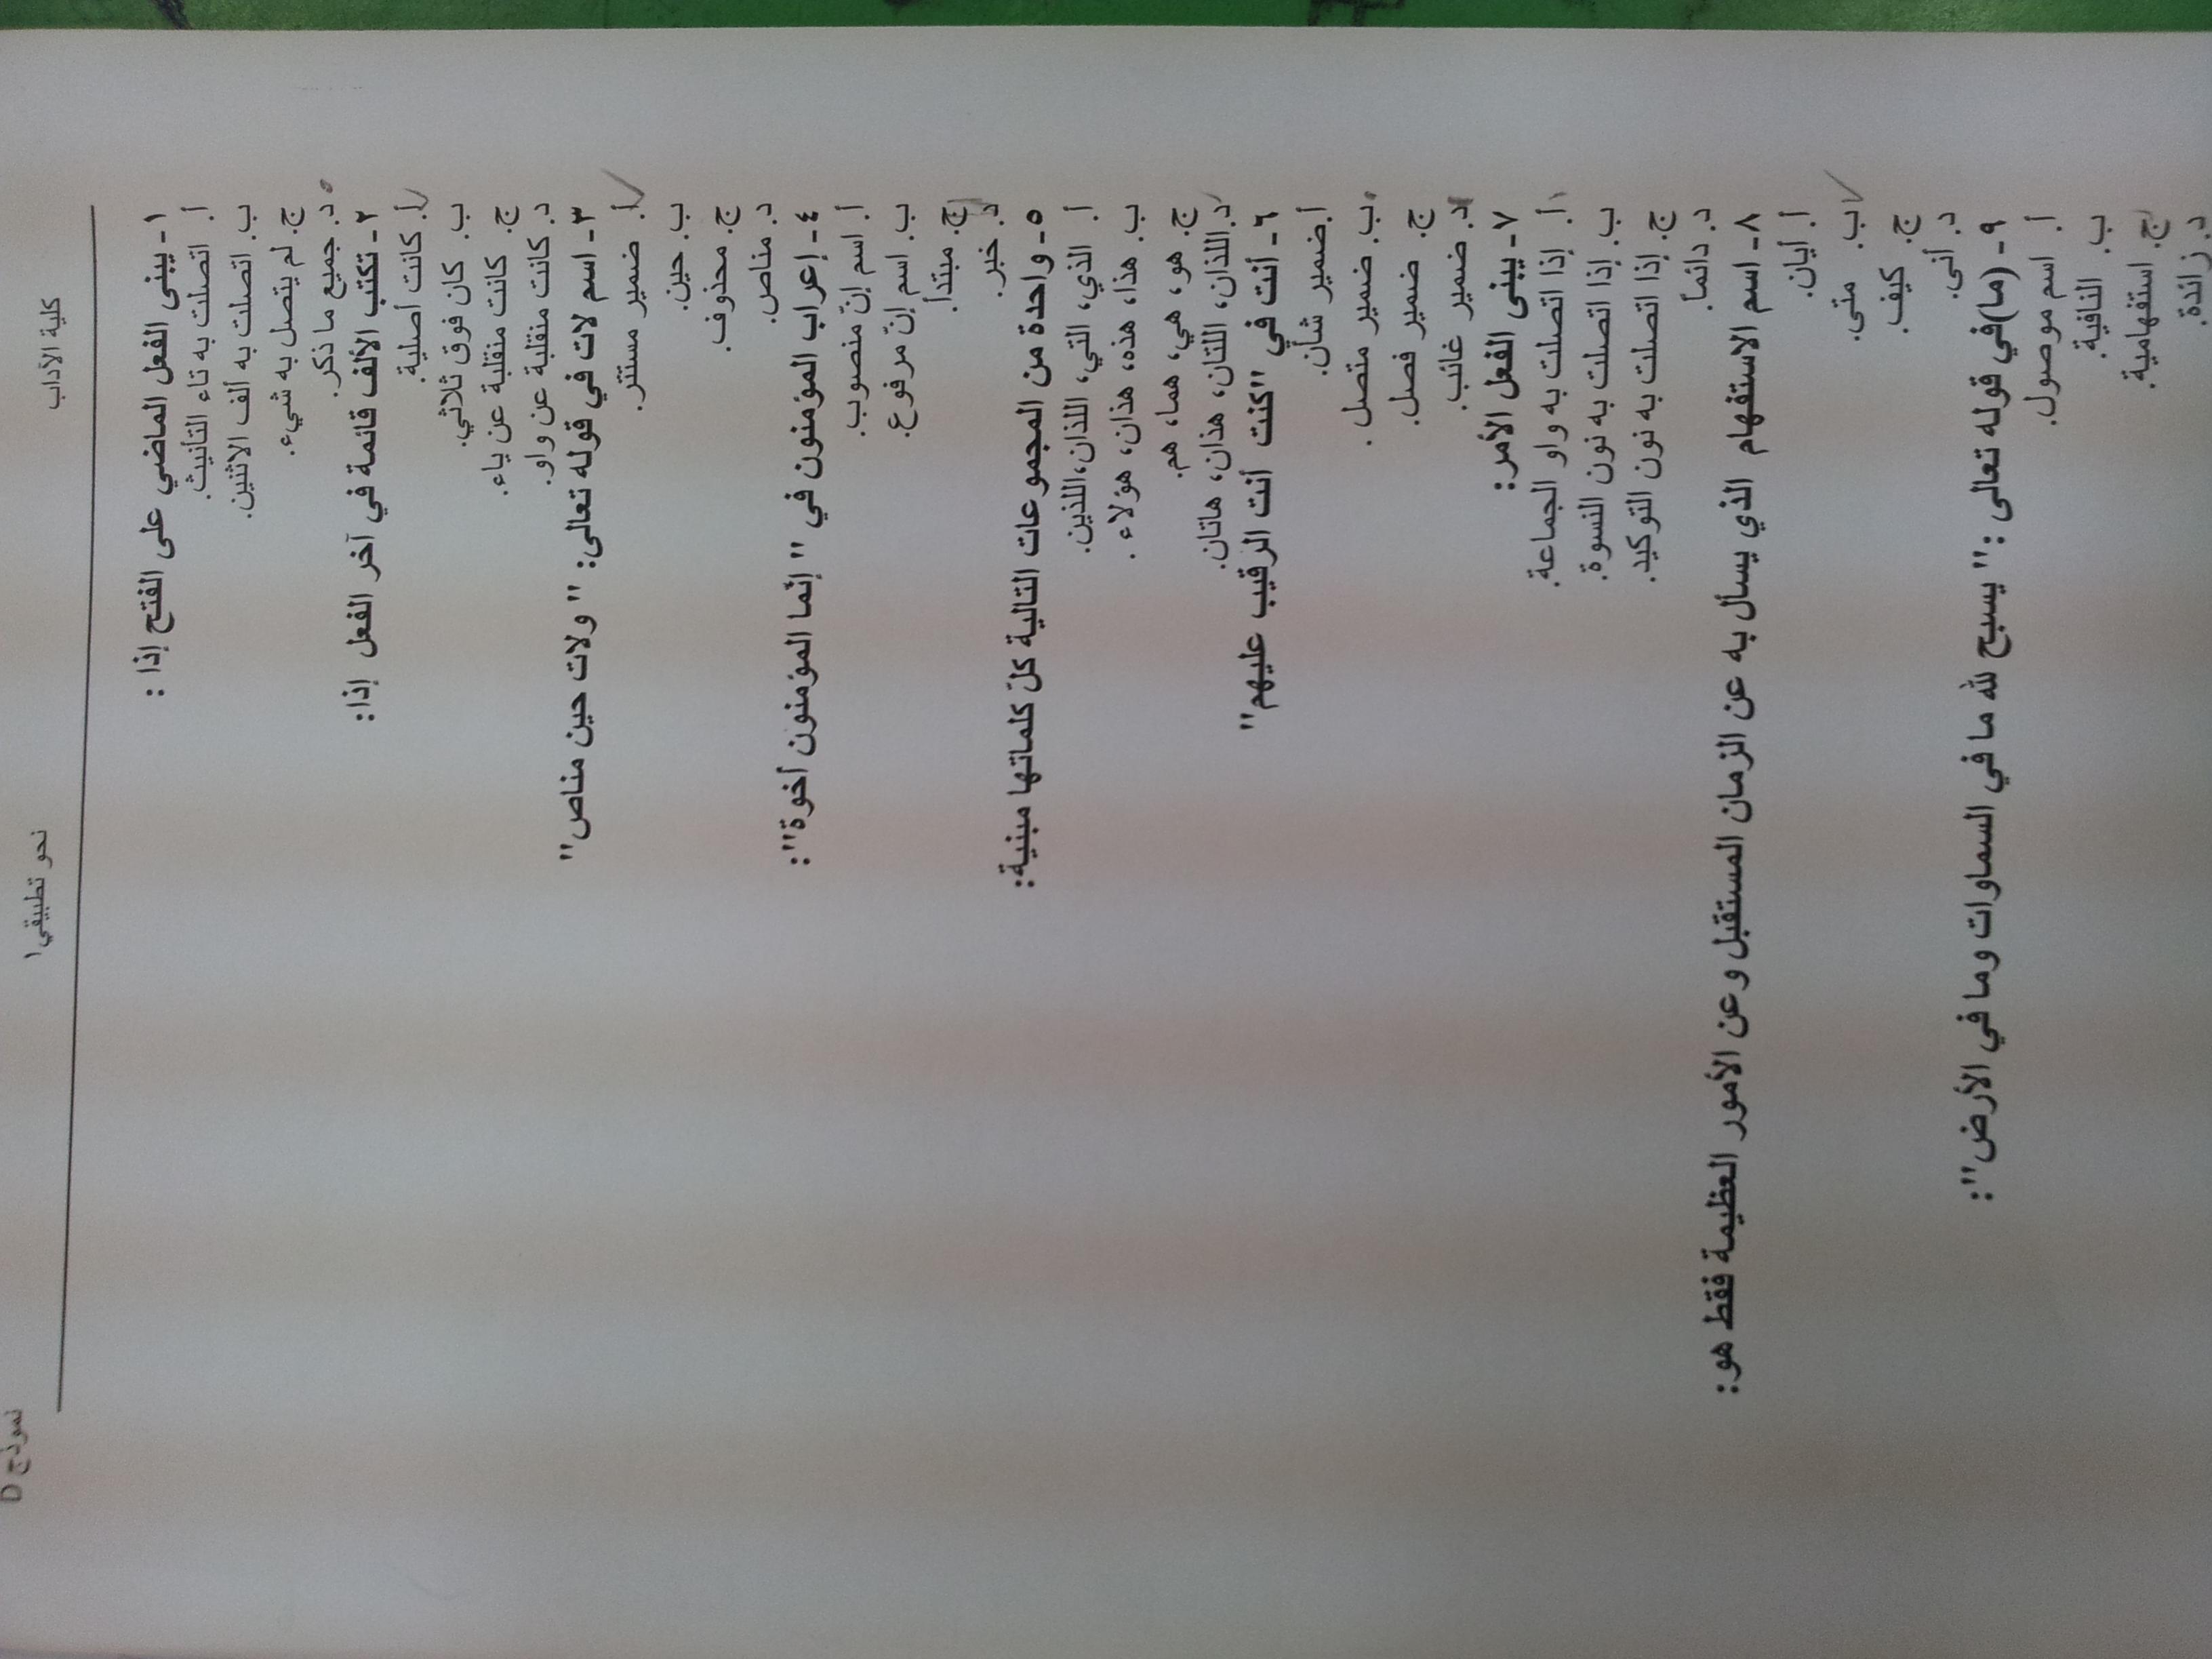 كلية الآداب
نحو تطبيقي ١
نموذج D
١- يبنى الفعل الماضي على الفتح إذا :
أ. اتصلت به تاء التأنيث.
ب. اتصلت به ألف الاثنين.
ج. لم يتصل به شيء.
د. جميع ما ذكر.
٢- تكتب الألف قائمة في آخر الفعل إذا:
أ. كانت أصلية.
ب. كان فوق ثلاثي.
ج. كانت منقلبة عن ياء.
د. كانت منقلبة عن واو.
٣- اسم لات في قوله تعالى: "ولات حين مناص"
أ. ضمير مستتر.
ب. حين.
ج. محذوف.
د. مناص.
٤- إعراب المؤمنون في " إنّما المؤمنون أخوة":
أ. اسم إنّ منصوب.
ب. اسم إنّ مرفوع.
ج. مبتدأ.
د. خبر.
٥- واحدة من المجموعات التالية كلّ كلماتها مبنية:
أ. الذي، التي، اللذان،اللذين.
ب. هذا، هذه، هذان، هؤلاء .
ج. هو، هي، هما، هم.
د.اللذان، اللتان، هذان، هاتان.
٦- أنت في "كنت أنت الرقيب عليهم"
أ.ضمير شأن.
ب. ضمير متصل .
ج. ضمير فصل.
د. ضمير غائب.
٧- يبنى الفعل الأمر:
أ. إذا اتصلت به واو الجماعة.
ب. إذا اتصلت به نون النسوة.
ج. إذا اتصلت به نون التوكيد.
د. دائما.
٨- اسم الاستفهام الذي يسأل به عن الزمان المستقبل وعن الأمور العظيمة فقط هو:
أ. أيان.
ب. متى.
ج. كيف.
د. أنى.
٩- (ما)في قوله تعالى :" يسبح لله ما في السماوات وما في الأرض":
أ. اسم موصول.
ب. النافية.
ج. استفهامية.
د. زائدة.